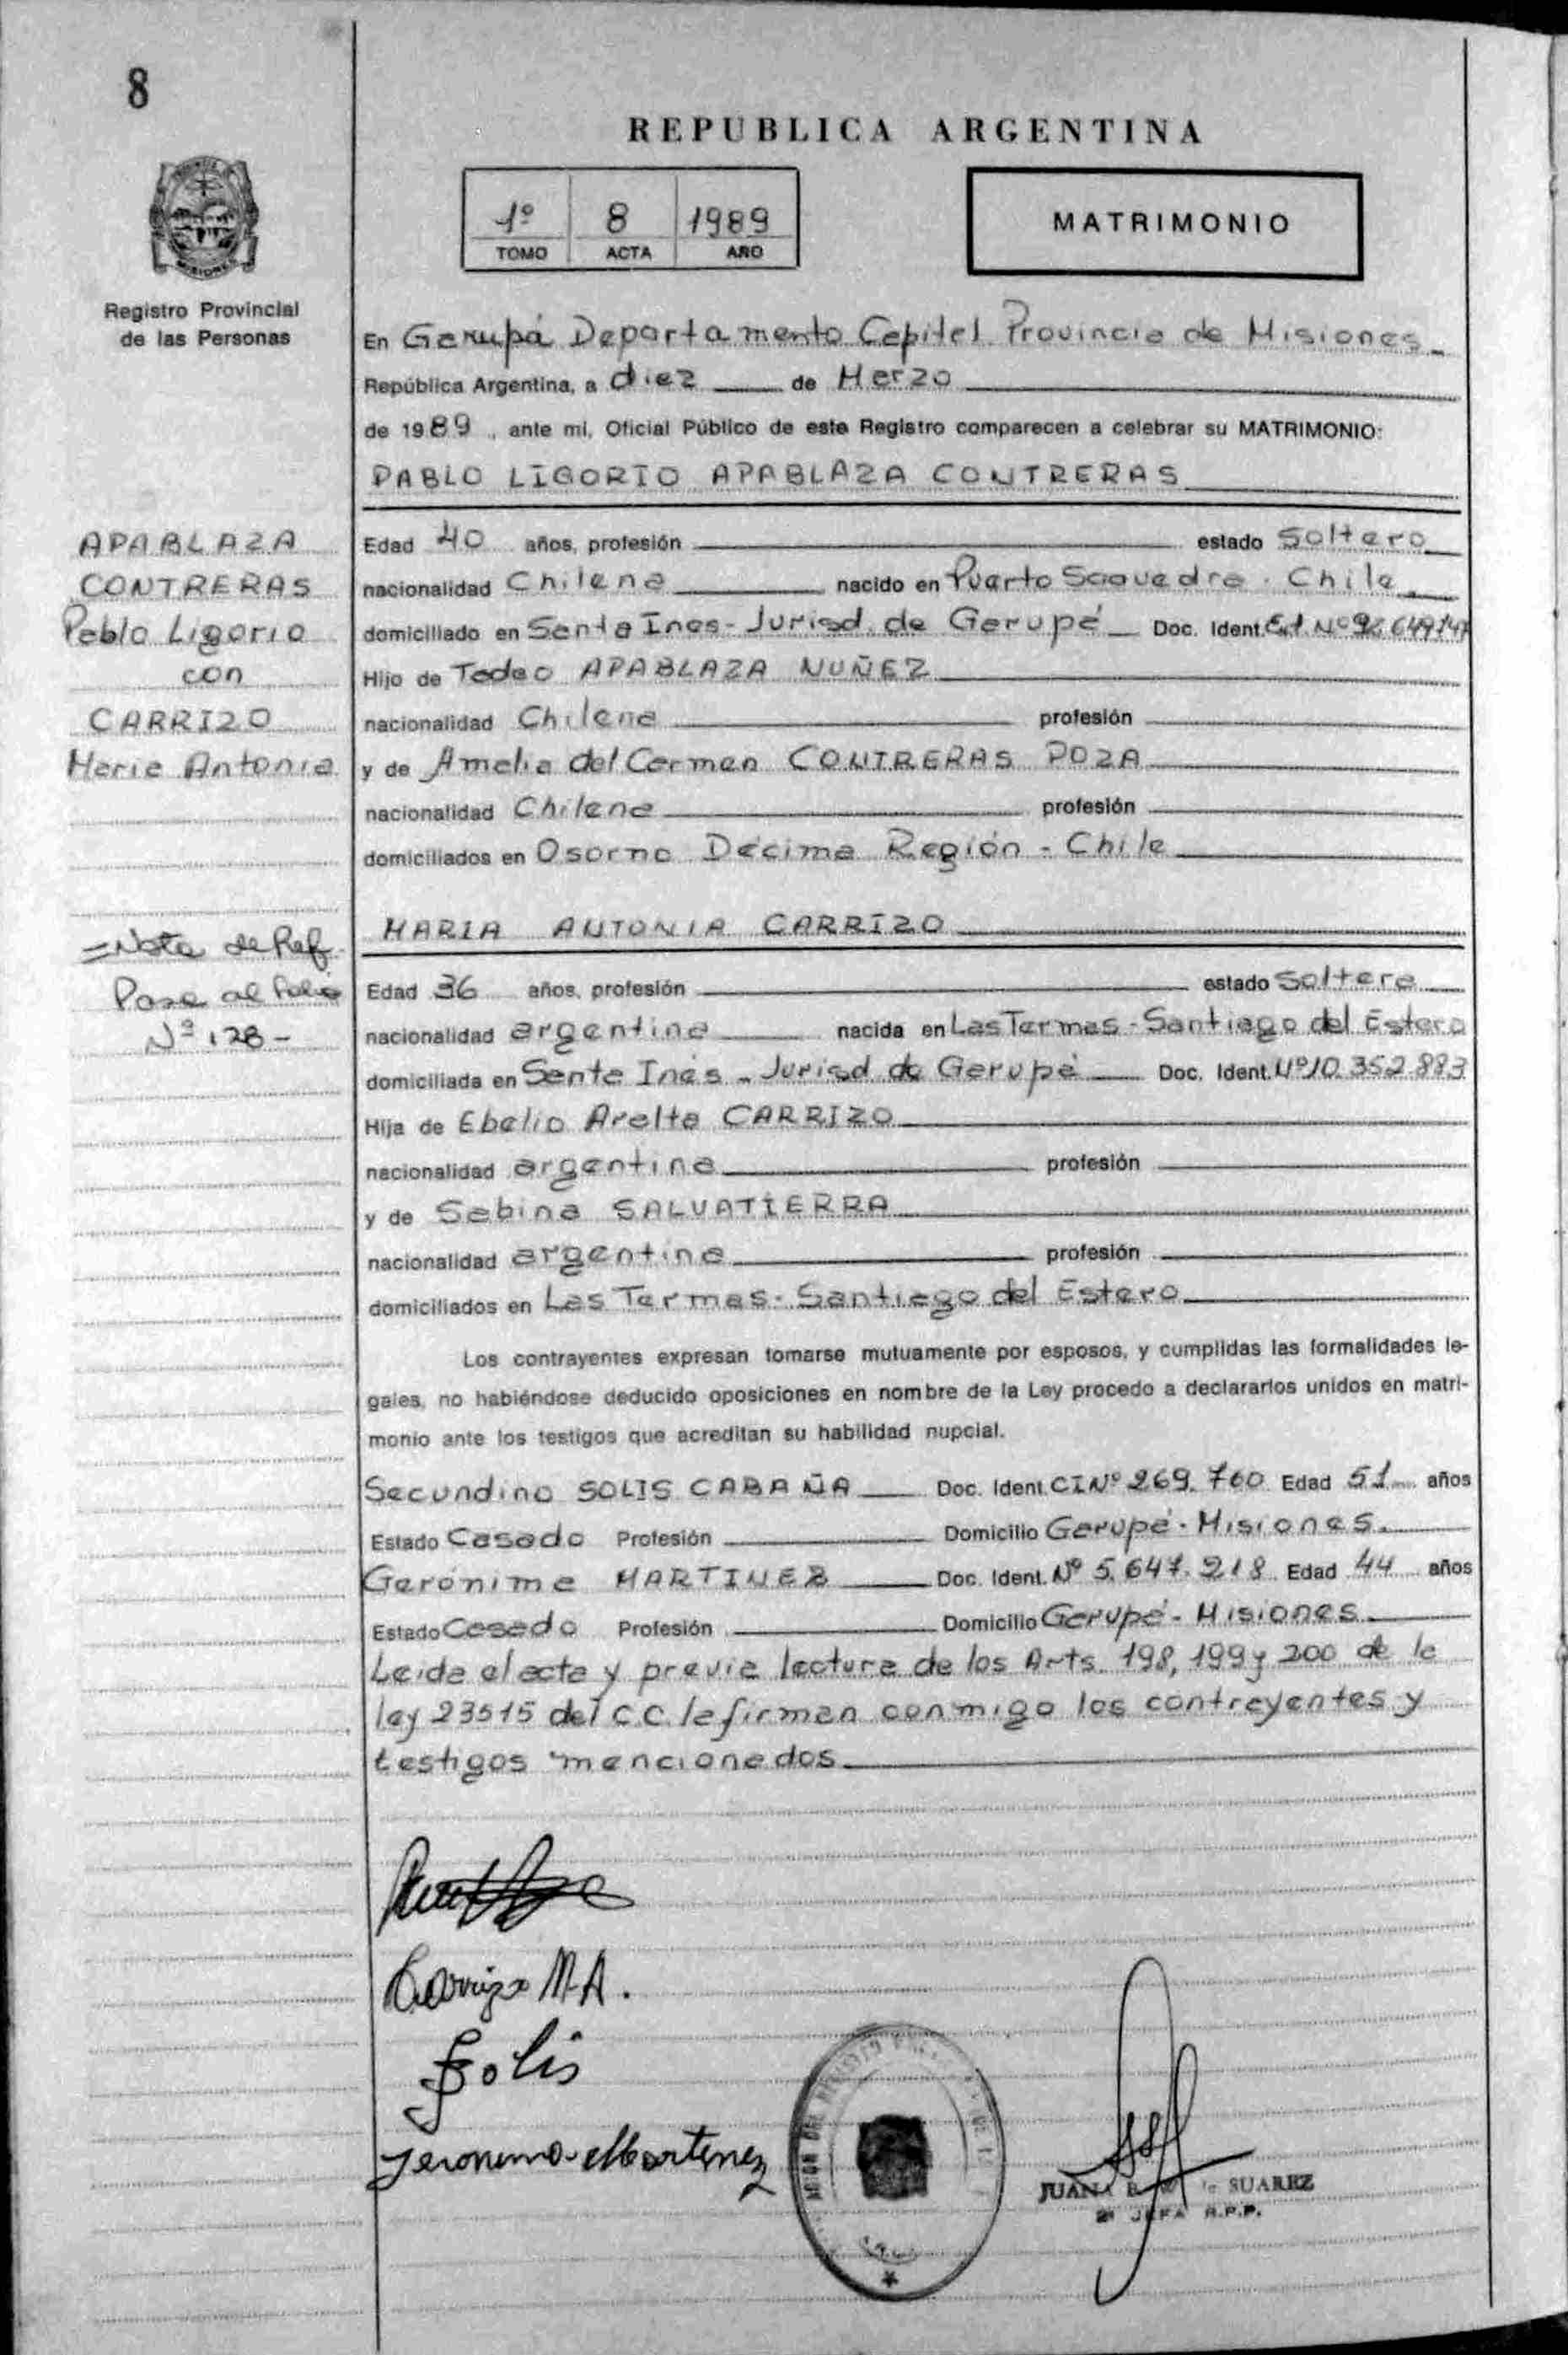 8
REPUBLICA ARGENTINA
1º 8 1989
TOMO ACTA AÑO
MATRIMONIO
Registro Provincial
de las Personas
En Garupá Departamento Capital Provincia de Misiones
República Argentina, a diez de Marzo
de 1989, ante mi, Oficial Público de este Registro comparecen a celebrar su MATRIMONIO:
PABLO LIGORIO APABLAZA CONTRERAS
APABLAZA
CONTRERAS
Pablo Ligorio
con
CARRIZO
Maria Antonia
Edad 40 años, profesión estado Soltero
nacionalidad Chilena nacido en Puerto Saavedra - Chile
domiciliado en Santa Ines - Jurisd. de Garupá Doc. Ident.
Hijo de Tadeo APABLAZA NUÑEZ
nacionalidad Chilena profesión
y de Amelia del Carmen CONTRERAS POZA
nacionalidad Chilena profesión
domiciliados en Osorno Décima Región - Chile
MARIA ANTONIA CARRIZO
=Nota de Ref.
Pase al folio
Nº 128-
Edad 36 años, profesión estado Soltera
nacionalidad argentina nacida en Las Termas - Santiago del Estero
domiciliada en Santa Inés - Jurisd de Garupá Doc. Ident. Nº 10.352.883
Hija de Ebelio Aralto CARRIZO
nacionalidad argentina profesión
y de Sabina SALVATIERRA
nacionalidad argentina profesión
domiciliados en Las Termas - Santiago del Estero
Los contrayentes expresan tomarse mutuamente por esposos, y cumplidas las formalidades le-
gales, no habiéndose deducido oposiciones en nombre de la Ley procedo a declararlos unidos en matri-
monio ante los testigos que acreditan su habilidad nupcial.
Secundino SOLIS CABAÑA Doc. Ident. CI Nº 269.760 Edad 51 años
Estado Casado Profesión Domicilio Garupá - Misiones.
Gerónimo MARTINEZ Doc. Ident. Nº 5.647.218 Edad 44 años
Estado Casado Profesión Domicilio Garupá - Misiones
Leída el acta y previa lectura de los Arts. 198, 199 y 200 de la
ley 23515 del C.C. la firman conmigo los contrayentes y
testigos mencionados
Carrizo M.A.
Solis
Jeronimo Martinez
JUANA SUAREZ
JEFA R.P.P.